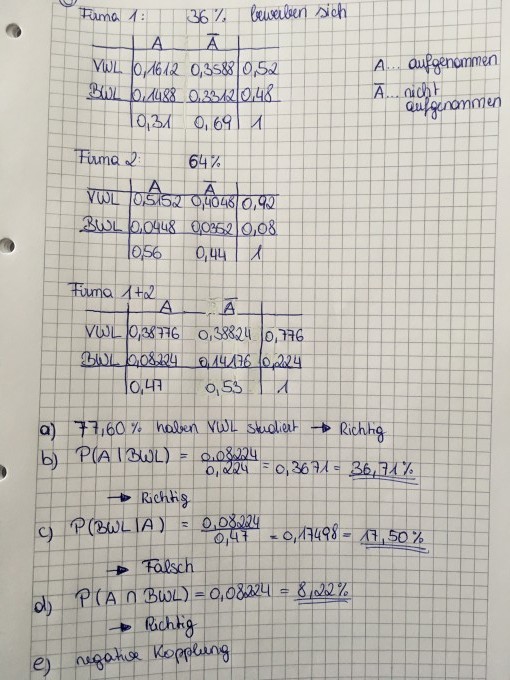 Firma 1: 36% bewerben sich
A Ā
VWL 0,1612 0,3588 0,52
A... aufgenommen
BWL 0,1488 0,3312 0,48
Ā... nicht aufgenommen
0,31 0,69 1
Firma 2: 64%
A Ā
VWL 0,5152 0,4048 0,92
BWL 0,0448 0,0352 0,08
0,56 0,44 1
Firma 1+2
A Ā
VWL 0,38776 0,38824 0,776
BWL 0,08224 0,14176 0,224
0,47 0,53 1
a) 77,60% haben VWL studiert → Richtig
b) P(A|BWL) = 0,08224 / 0,224 = 0,3671 = 36,71%
→ Richtig
c) P(BWL|A) = 0,08224 / 0,47 = 0,17498 = 17,50%
→ Falsch
d) P(A ∩ BWL) = 0,08224 = 8,22%
→ Richtig
e) negative Kopplung